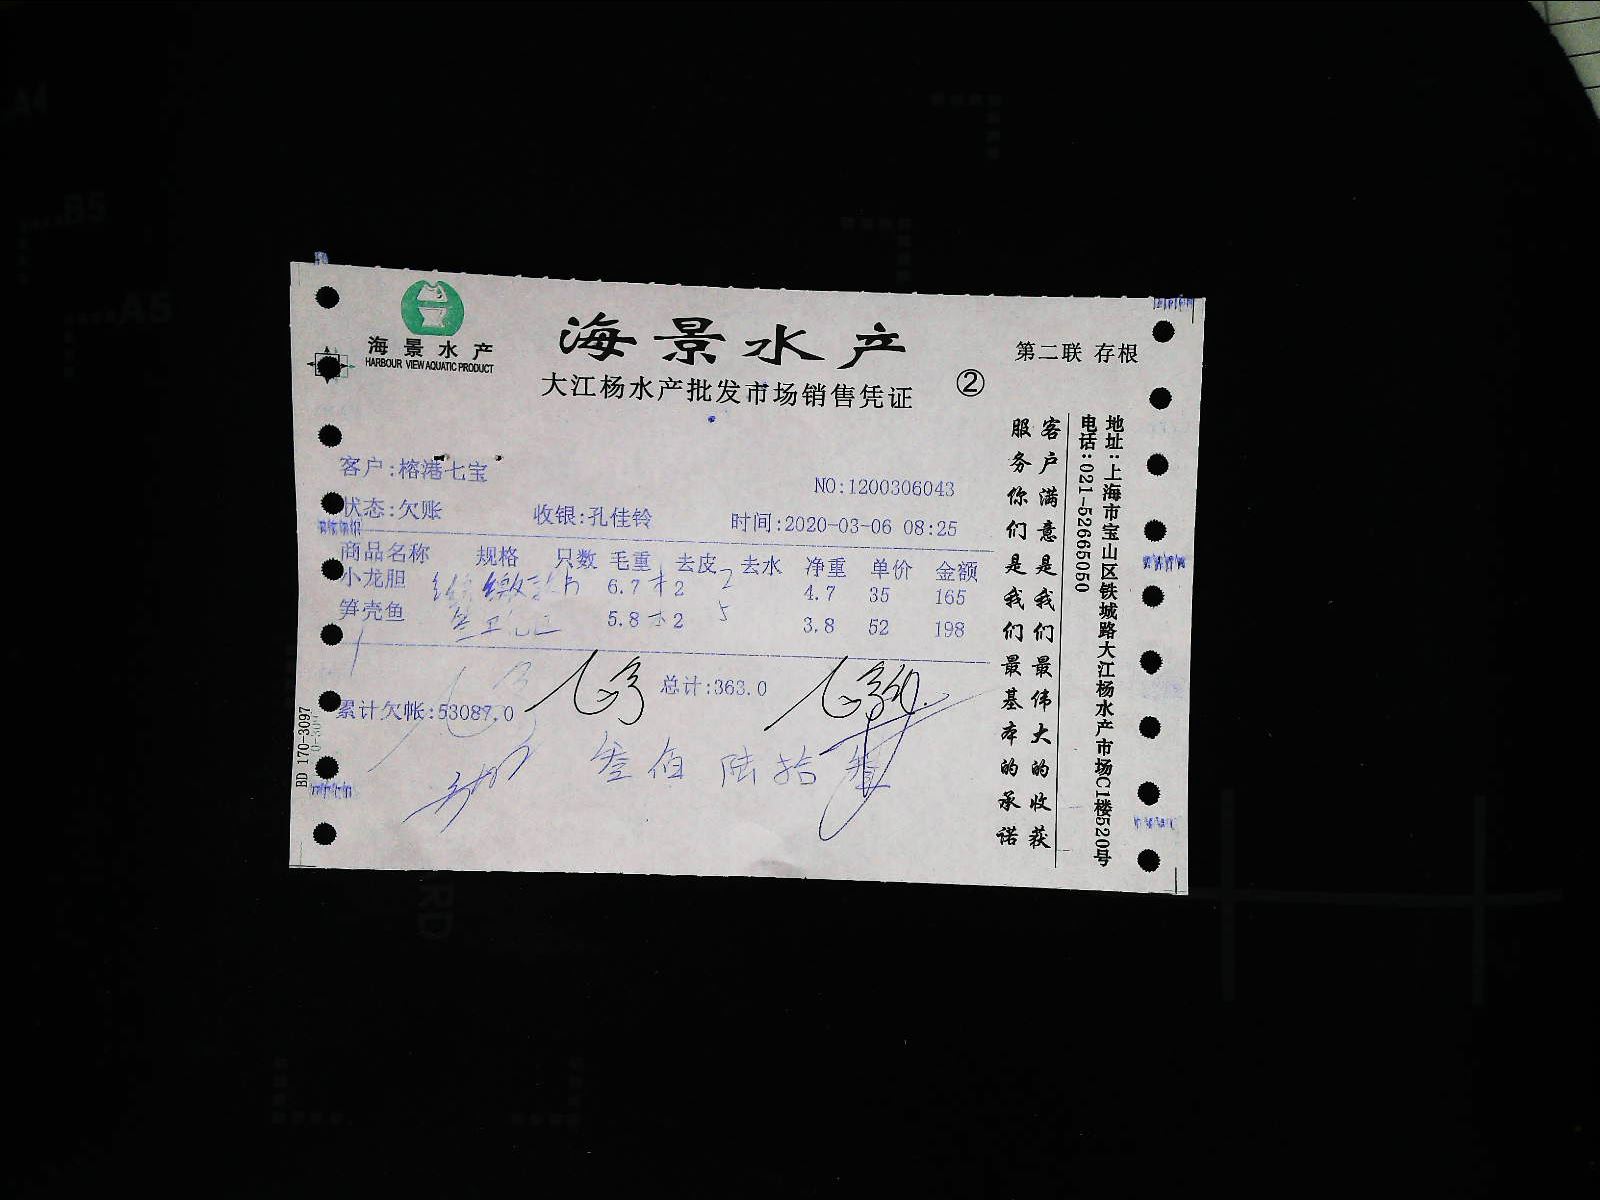 海景水产
HARBOUR VIEW AQUATIC PRODUCT
海景水产
大江杨水产批发市场销售凭证
②
第二联 存根
客户:榕港七宝
NO:1200306043
状态:欠账 收银:孔佳铃 时间:2020-03-06 08:25
商品名称 规格 只数 毛重 去皮 去水 净重 单价 金额
小龙胆 6.7 2 4.7 35 165
笋壳鱼 5.8 2 3.8 52 198
总计:363.0
累计欠帐:53087.0
叁佰陆拾叁
客户满意是我们最伟大的收获
服务你们是我们最基本的承诺
地址:上海市宝山区铁城路大江杨水产市场C1楼520号
电话:021-52665050
BD 170-3097
A4
B5
A5